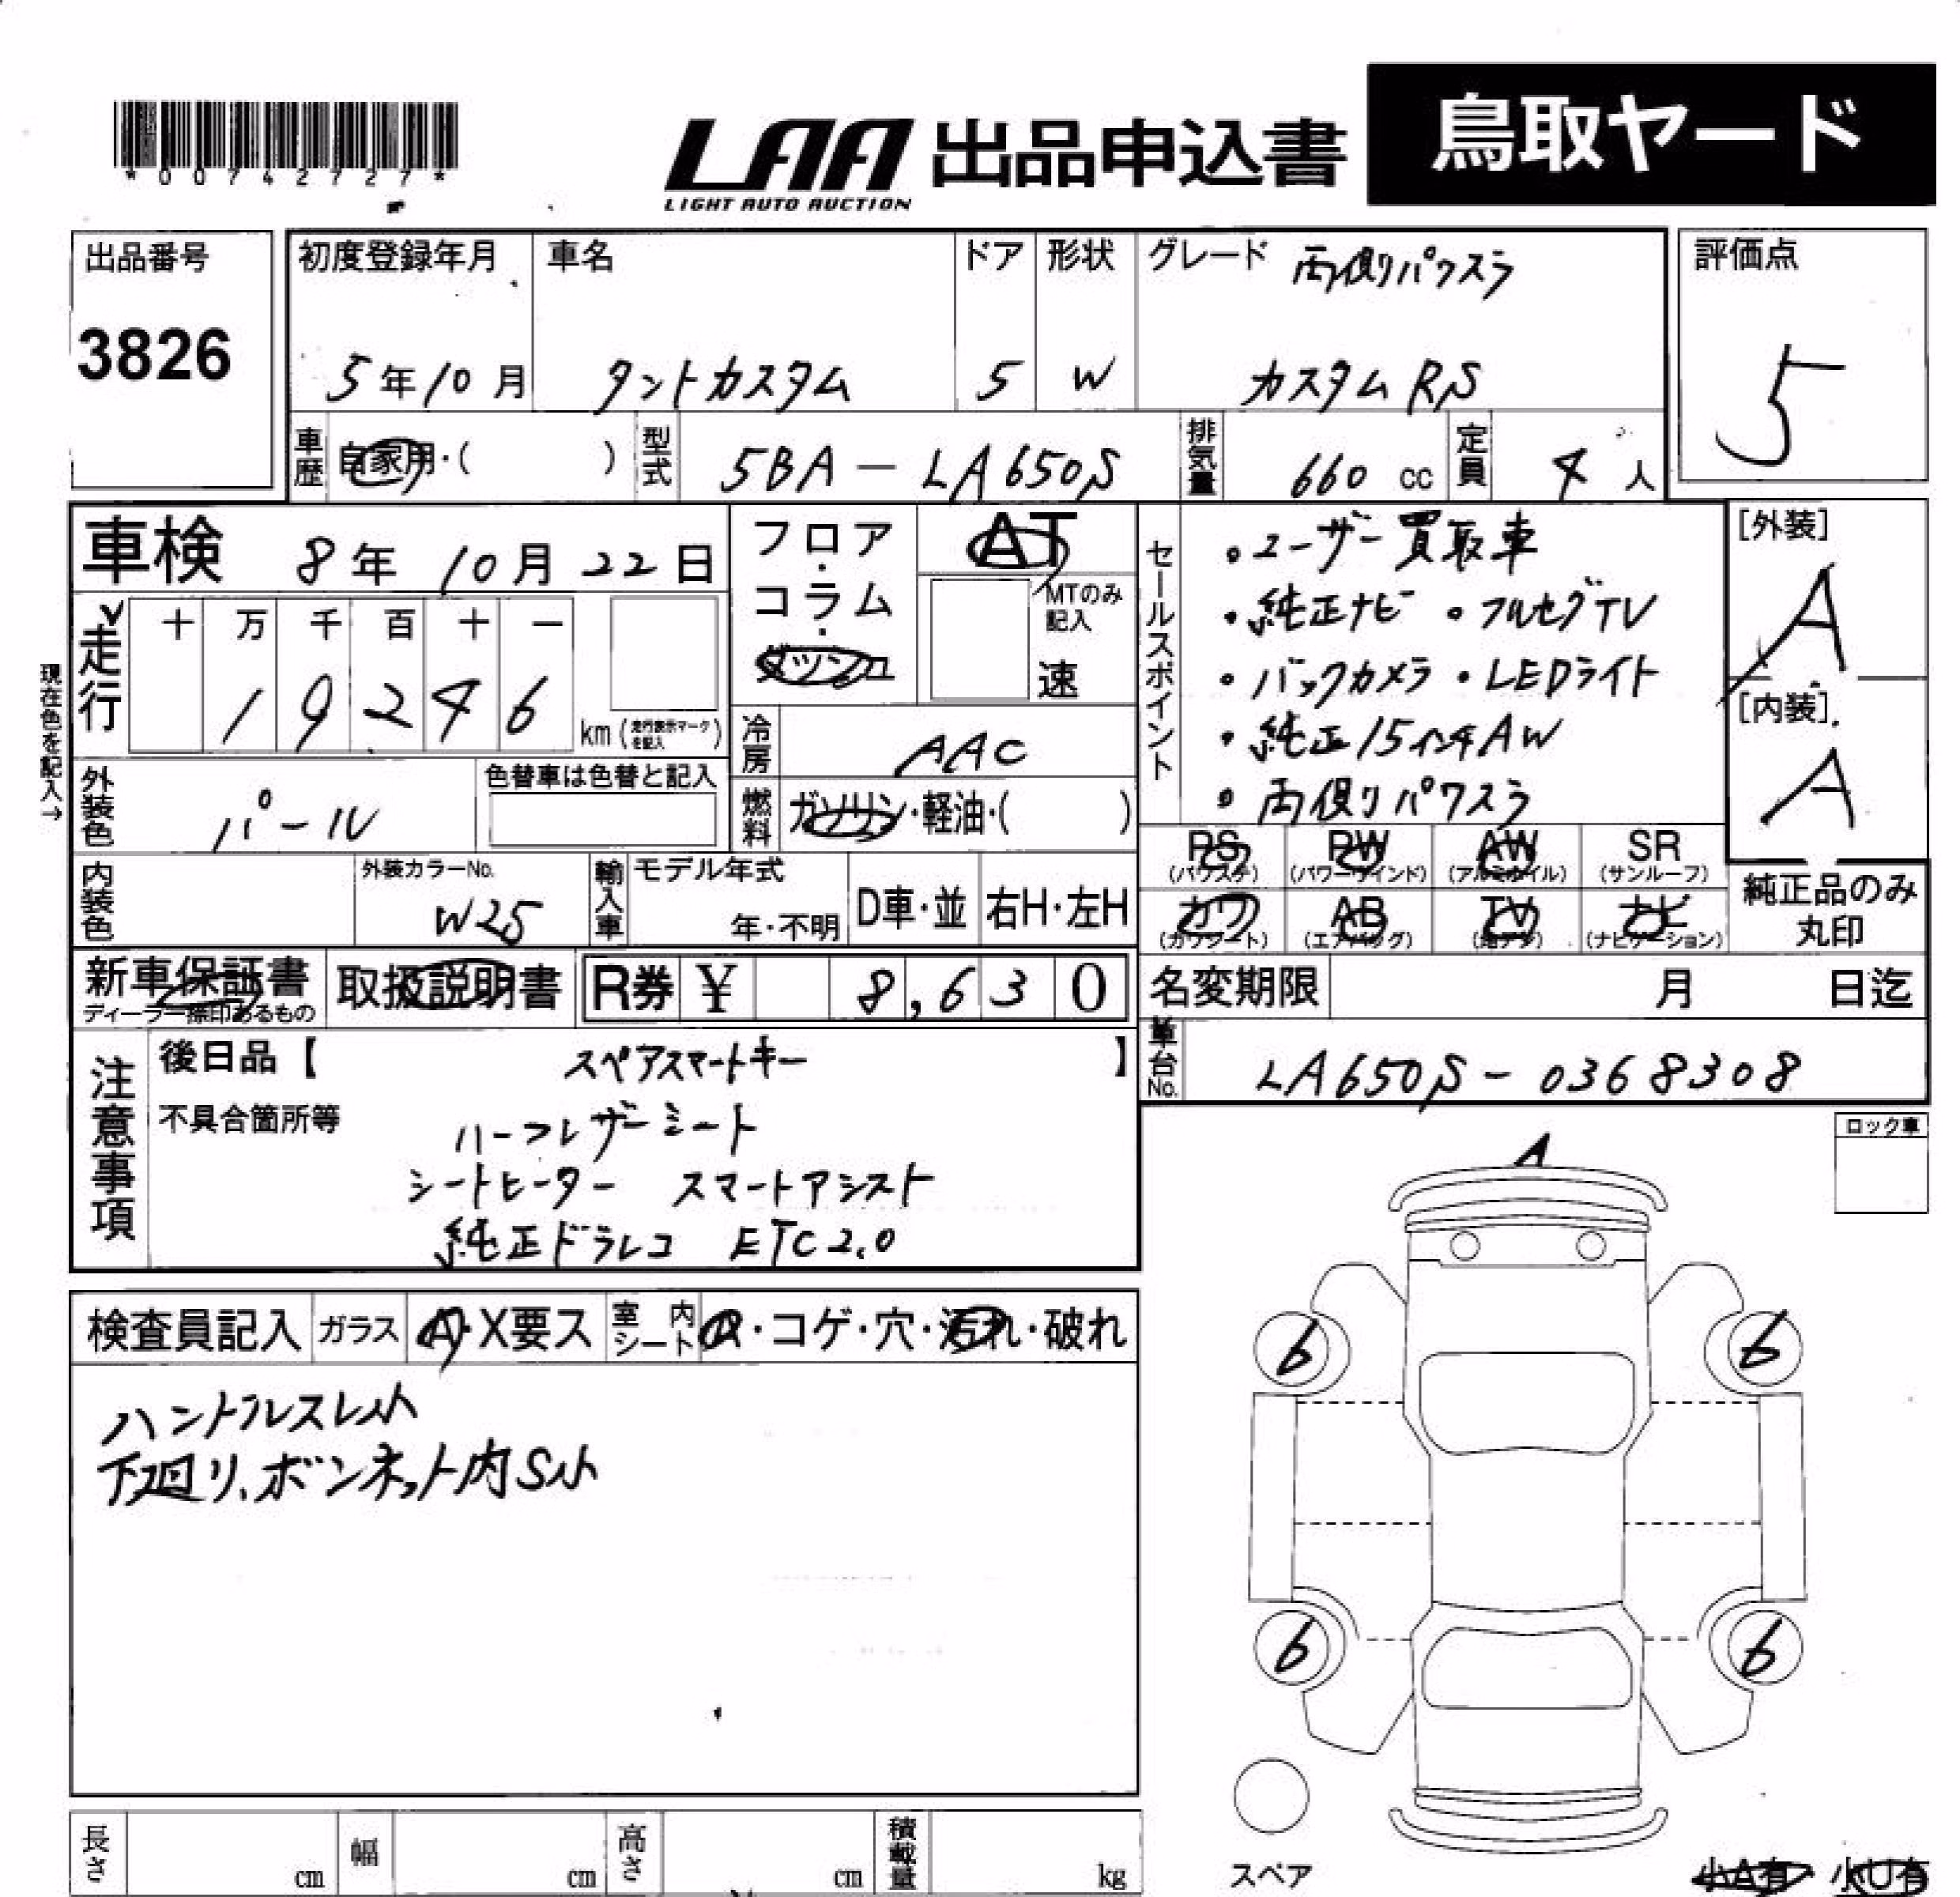 *0074272 7*
LAA
LIGHT AUTO AUCTION
出品申込書
鳥取ヤード
出品番号
3826
初度登録年月
5年10月
車名
タントカスタム
ドア
5
形状
W
グレード 両側パワスラ
カスタムRS
評価点
5
車歴 自家用・( )
型式 5BA-LA650S
排気量 660 cc
定員 4人
車検 8年 10月 22日
フロア・コラム・ダッシュ
AT
MTのみ記入
速
走行
十 万 千 百 十 一
1 9 2 4 6
km(走行表示マークを記入)
現在色を記入→
冷房 AAC
燃料 ガソリン・軽油・( )
外装色 パール
色替車は色替と記入
内装色
外装カラーNo.
W25
輸入車 モデル年式
年・不明
D車・並
右H・左H
セールスポイント
・ユーザー買取車
・純正ナビ ・フルセグTV
・バックカメラ ・LEDライト
・純正15インチAW
・両側パワスラ
[外装]
A
[内装]
A
PS (パワステ)
PW (パワーウインド)
AW (アルミホイル)
SR (サンルーフ)
カワ (カワシート)
AB (エアバッグ)
TV (地デジ)
ナビ (ナビゲーション)
純正品のみ
丸印
新車保証書
ディーラー捺印あるもの
取扱説明書
R券 ¥ 8,630
名変期限 月 日迄
車台No. LA650S-0368308
注意事項
後日品【 スペアスマートキー 】
不具合箇所等
ハーフレザーシート
シートヒーター スマートアシスト
純正ドラレコ ETC2.0
検査員記入 ガラス A・X要ス
室内シート ・コゲ・穴・汚れ・破れ
ハンドルスレ小
下廻り、ボンネット内S小
ロック車
A
6 6
6 6
スペア
小A有 小U有
長さ cm
幅 cm
高さ cm
積載量 kg